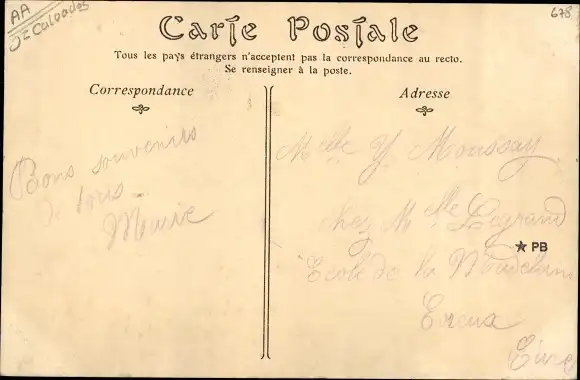 AA
Calvados
678
Carte Postale
Tous les pays étrangers n'acceptent pas la correspondance au recto.
Se renseigner à la poste.
Correspondance
Adresse
Bons souvenirs
de tous
Marie
Melle Y Moussay
chez Melle Legrand
PB
Ecole de la Madeleine
Evreux
Eure